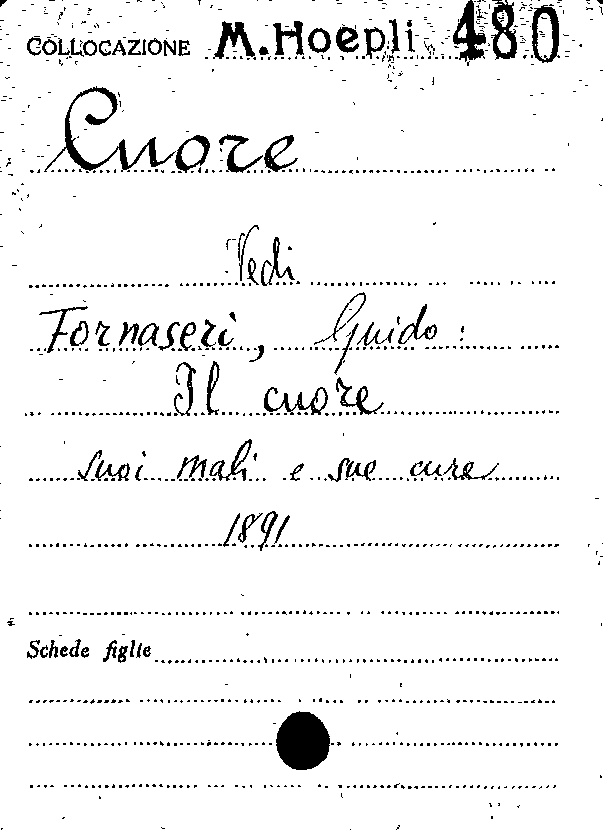 COLLOCAZIONE M. Hoepli 480
Cuore
Vedi
Fornaseri, Guido:
Il cuore
suoi mali e sue cure
1891
Schede figlie